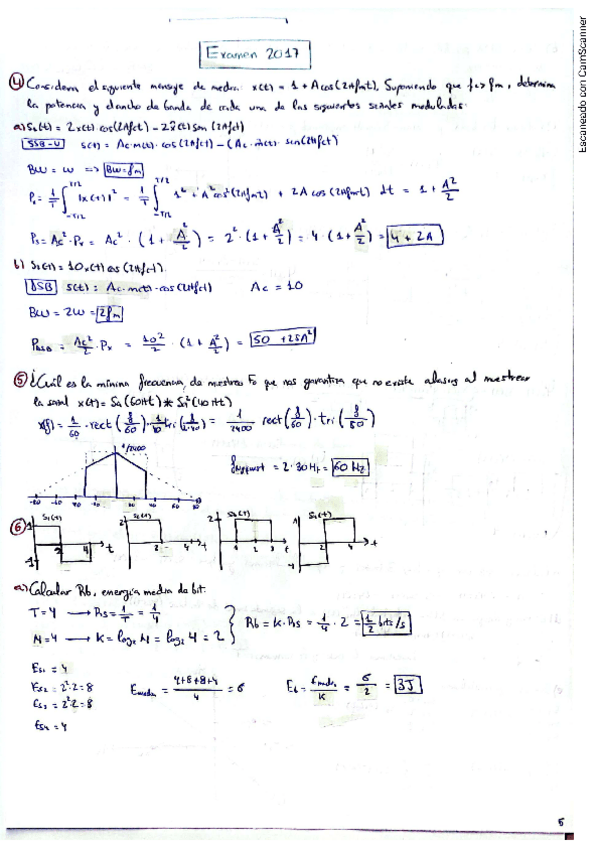 Examen 2017
④ Considera el siguiente mensaje de media: x(t) = 1 + Acos(2πfmt). Suponiendo que fc>> fm, determina
la potencia y ancho de banda de cada una de las siguientes señales moduladas:
a) S1(t) = 2x(t)·cos(2πfct) - 2x̂(t) sen(2πfct)
SSB-U S(t) = Ac·m(t)·cos(2πfct) - (Ac·m̂(t)·sen(2πfct)
BW = W => BW = fm
Px = 1/T ∫_{-T/2}^{T/2} |x(t)|² = 1/T ∫_{-T/2}^{T/2} 1² + A²cos²(2πfmt) + 2A cos(2πfmt) dt = 1 + A²/2
Ps = Ac²·Px = Ac²·(1 + A²/2) = 2²·(1 + A²/2) = 4·(1 + A²/2) = 4 + 2A
b) S2(t) = 10x(t) cos(2πfct).
DSB S(t) = Ac·m(t)·cos(2πfct) Ac = 10
BW = 2W = 2fm
PDSB = Ac²/2 · Px = 10²/2 · (1 + A²/2) = 50 + 25A²
⑤ ¿Cuál es la mínima frecuencia, de muestreo Fo que nos garantiza que no existe aliasing al muestrear
la señal x(t) = Sa(60πt) * Sa²(40πt)
x(f) = 1/60 · rect(f/60) · 1/40 tri(f/2·40) = 1/2400 rect(f/60)·tri(f/80)
1/2400
fnyquist = 2·30Hz = 60 Hz
⑥ S1(t) S2(t) S3(t) S4(t)
a) Calcular Rb, energía media da bit.
T = 4 → Rs = 1/T = 1/4
M = 4 → K = log2 M = log2 4 = 2
Rb = K·Rs = 1/4 · 2 = 1/2 bits/s
Es1 = 4
Es2 = 2²·2 = 8
Es3 = 2²·2 = 8
Es4 = 4
Emedia = 4+8+8+4/4 = 6
Eb = Emedia/K = 6/2 = 3J
5
Escaneado con CamScanner